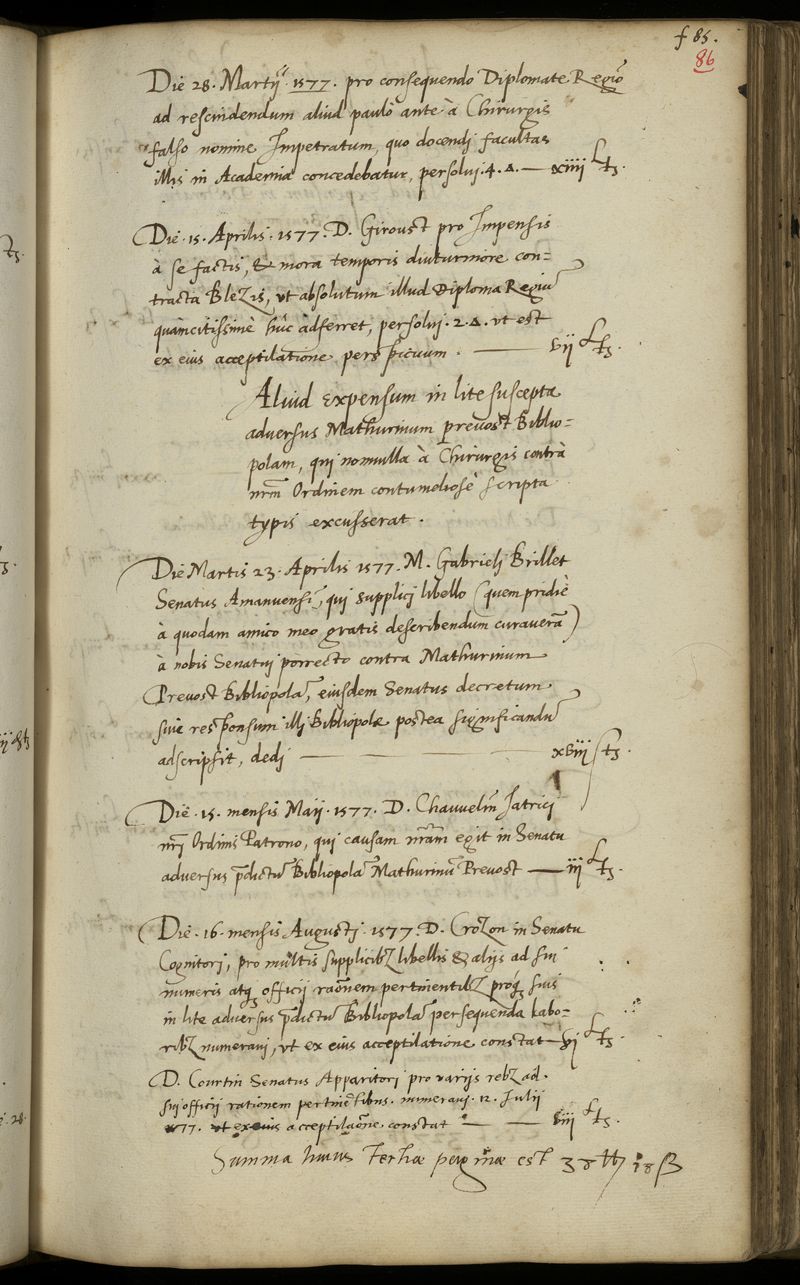 f 85.
86
Die 28. Martij 1577. pro consequendo Diplomate Regio
ad rescindendum aliud paulò ante à Chirurgis
falso nomine Impetratum, quo docendj facultas
illis in Academia concedebatur, persoluj. 4. Δ. — xiiij Lts.
Die. 15. Aprilis. 1577. D. Giroust pro Impensis
à se factis, & mora temporis diuturniore con=
tracta Blezis, vt absolutum illud Diploma Regiũ
quàmcitissimè huc àdferret, persoluj. 2. Δ. vt est
ex eius acceptilatione perspicuum. — vij Lts.
Aliud expensum in lite suscepta
aduersus Mathurinum preuost Biblio=
polam, qui nonnulla à Chirurgis contrà
nrm Ordinem contumeliosè scripta
typis excusserat.
Die Martis 23. Aprilis 1577. M. Gabrielj Brillet
Senatus Amanuensi, quj supplicj libello (quem pridiè
à quodam amico meo gratis describendum curauerã)
à nobis Senatuj porrecto contra Mathurinum
Preuost Bibliopolã, eiusdem Senatus decretum
siue responsum illj Bibliopolæ postea significandũ
adscripsit, dedj — xviij ts.
Die. 15. mensis Maij. 1577. D. Chauuelin Iatricj
nrj Ordinis Patrono, quj causam nrãm egit in Senatu
aduersus p̃dictũ Bibliopolã Mathurinũ Preuost — iij Lts.
Die. 16. mensis Augustj. 1577. D. Crozon in Senatu
Cognitorj, pro multis supplicibz libellis & alijs ad sui
muneris atq; officij raõnem pertinentibz, próq; suis
in lite aduersus p̃dictũ Bibliopolã persequenda labo=
ribz numerauj, vt ex eius acceptilatione constat — vj Lts.
D. Courtin Senatus Apparitorj pro varijs rebz ad
sui officij rationem pertinẽtibus. numerauj. 12. Julij
1577. vt ex eius acceptilaõne constat — viij Lts.
Summa huius tertiæ paginæ est 38 lb 18 ß